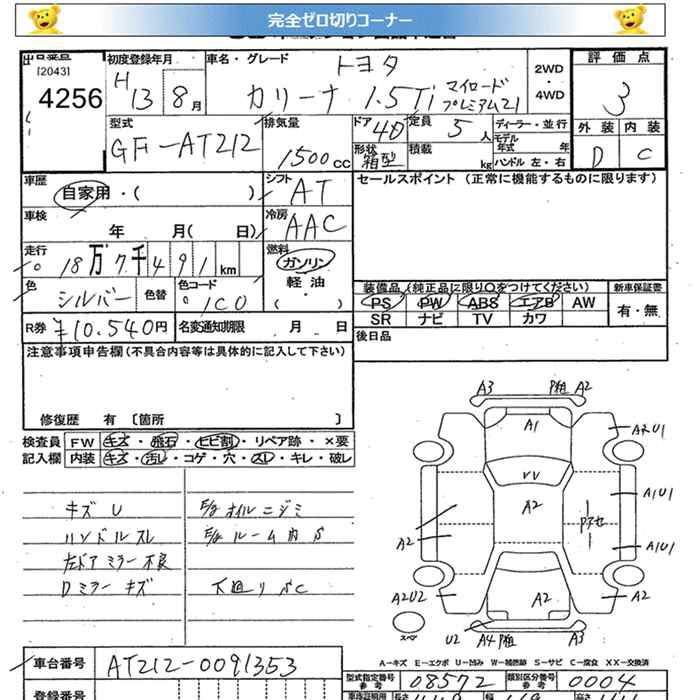 完全ゼロ切りコーナー
初度登録年月 車名・グレード トヨタ 2WD・4WD 評価点
[2043]
4256 H13 8月 カリーナ 1.5Ti マイロード プレミアム21 3
型式 排気量 ドア 4D 定員 5人 ディーラー・並行 外装 内装
GF-AT212 1500cc 形状 箱型 積載 kg モデル年式 年 ハンドル 左・右 D C
車歴 自家用・( ) シフト AT セールスポイント (正常に機能するものに限ります)
車検 年 月( 日) 冷房 AAC
走行 18万7千491km 燃料 ガソリン
軽油
( )
色 シルバー 色替 色コード 1C0 装備品(純正品に限り○をつけてください) 新車保証書
PS PW ABS エアB AW 有・無
SR ナビ TV カワ
R券 ¥10.540円 名変通知期限 月 日 後日品
注意事項申告欄(不具合内容等は具体的に記入して下さい)
修復歴 有 〔箇所 〕
検査員 FW キズ・飛石・ヒビ割・リペア跡・×要
記入欄 内装 キズ・汚レ・コゲ・穴・スレ・キレ・破レ
キズ U E/g オイルニジミ
ハンドルスレ E/g ルーム内S
左ドアミラー不良
Dミラーキズ 下廻りSC
A3 P粗 A2
A1
A2U1
VV
A2
A1U1
Pアセ
A2
A1U1
A2U2
A2
A2
スペア
U2 A4 P粗 A3
A-キズ E-エクボ U-凹み W-補修跡 S-サビ C-腐食 XX-交換済
車台番号 AT212-0091353 型式指定番号 参考 08572 類別区分番号 参考 0004
登録番号